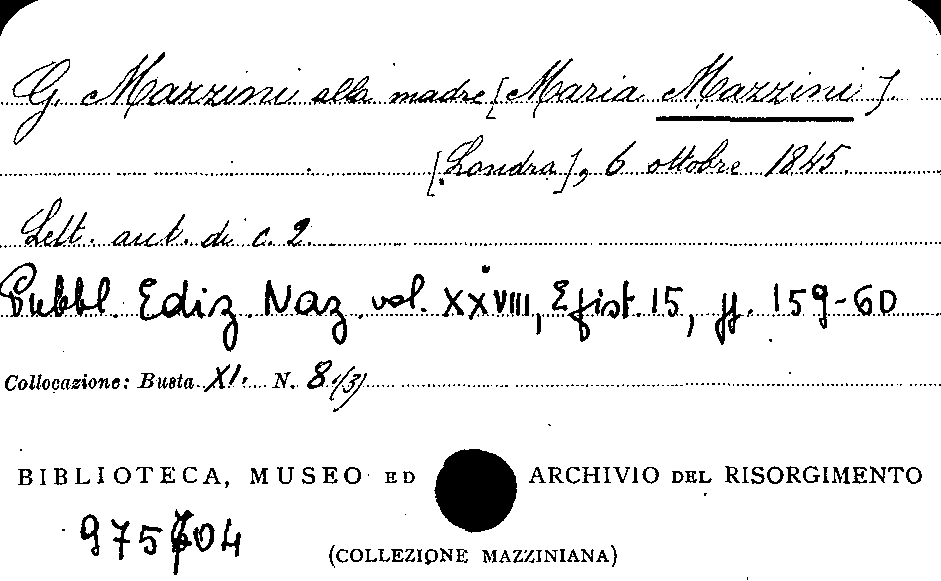 G. Mazzini alla madre [Maria Mazzini].
[Londra], 6 ottobre 1845.
Lett. aut. di c. 2.
Pubbl. Ediz. Naz. vol. XXVIII, Epist. 15, pp. 159-60
Collocazione: Busta XI. N. 8 1/3)
BIBLIOTECA, MUSEO ED ARCHIVIO DEL RISORGIMENTO
(COLLEZIONE MAZZINIANA)